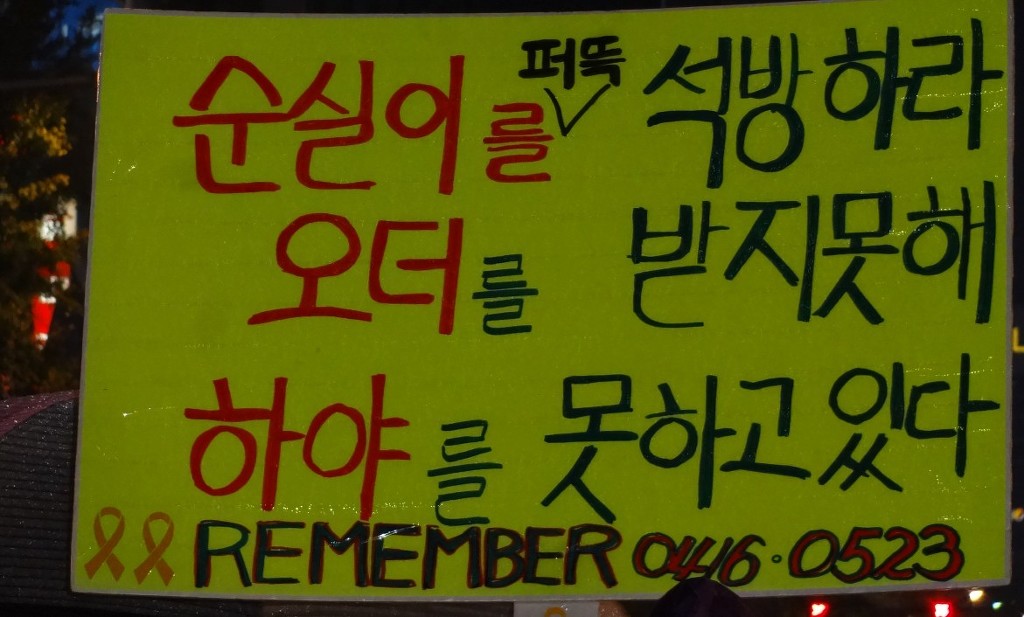 순실이를 퍼뜩 석방하라
오더를 받지못해
하야를 못하고 있다
REMEMBER 0416·0523